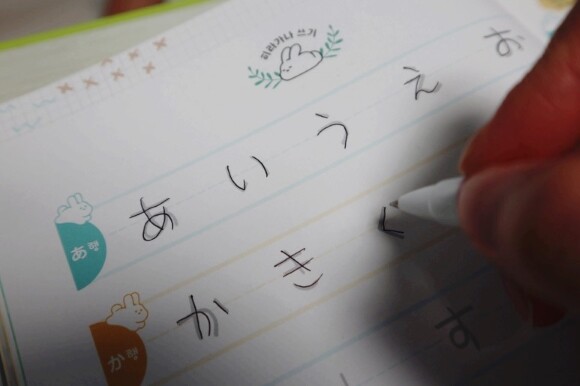 히라가나 쓰기
あ행 あ い う え お
か행 か き く
す